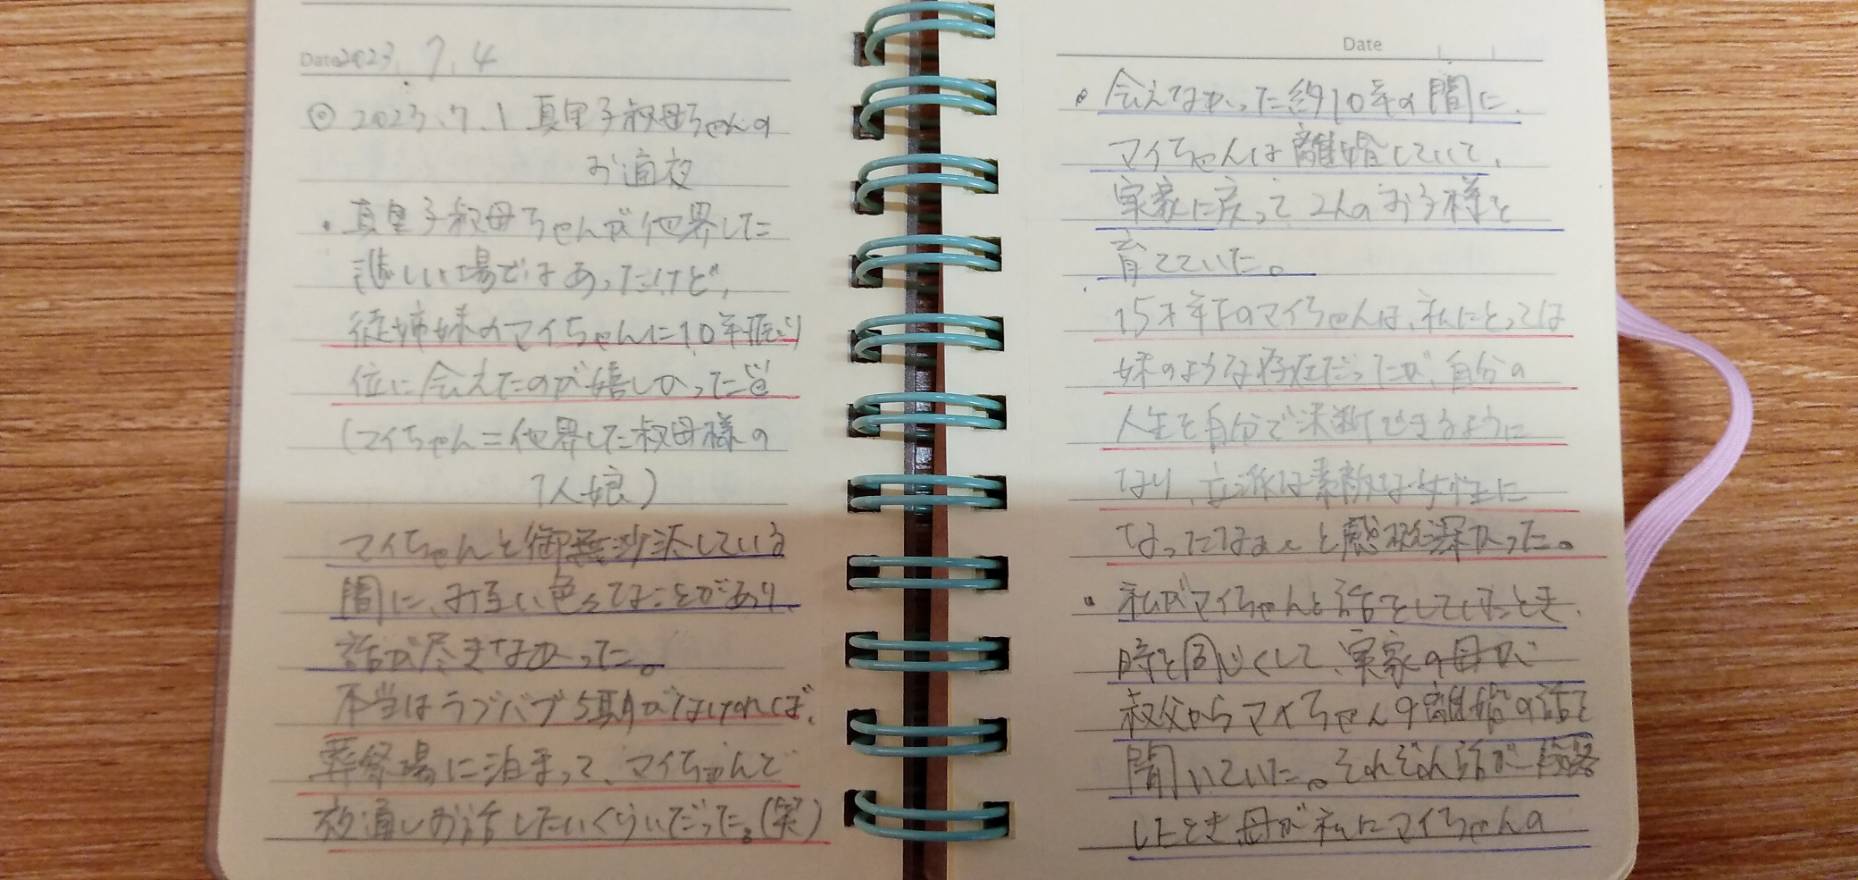 Date 2023.7.4
◎ 2023.7.1 真里子叔母ちゃんの
お通夜
・真里子叔母ちゃんが他界した
悲しい場ではあったけど、
従姉妹のマイちゃんに10年振り
位に会えたのが嬉しかった
(マイちゃん=他界した叔母様の
1人娘)
マイちゃんと御無沙汰している
間に、お互い色々なことがあり、
話が尽きなかった。
本当はラブバブ5期がなければ、
葬祭場に泊まって、マイちゃんと
夜通しお話したいくらいだった。(笑)
Date
・会えなかった約10年の間に、
マイちゃんは離婚していて、
実家に戻って2人のお子様を
育てていた。
15才年下のマイちゃんは、私にとっては
妹のような存在だったが、自分の
人生を自分で決断できるように
なり、立派な素敵な女性に
なったなぁと感慨深かった。
・私がマイちゃんと話をしていたとき、
時を同じくして、実家の母が
叔父からマイちゃんの離婚の話を
聞いていた。それぞれ話が
したとき母が私にマイちゃんの